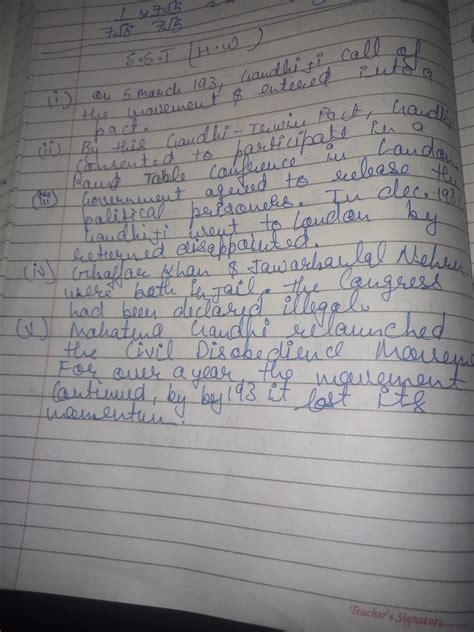 1 x 7√5
7√5 7√5
S.S.T (H.W)
(i) On 5 March 193, Gandhiji call of
the movement & entered into a
pact.
(ii) By this Gandhi-Irwin Pact, Gandhi
consented to participate in a
Round Table Conference in London
(iii) Government agreed to release the
political prisoners. In dec. 1931
Gandhiji went to London by
returned disappointed.
(iv) Ghaffar Khan & Jawarhaulal Nehru
were both in jail. The Congress
had been declared illegal.
(v) Mahatma Gandhi relaunched
the Civil Disobedience Movem
For over a year, the movement
continued, by by 193 it lost its
momentum.
Teacher's Signature........